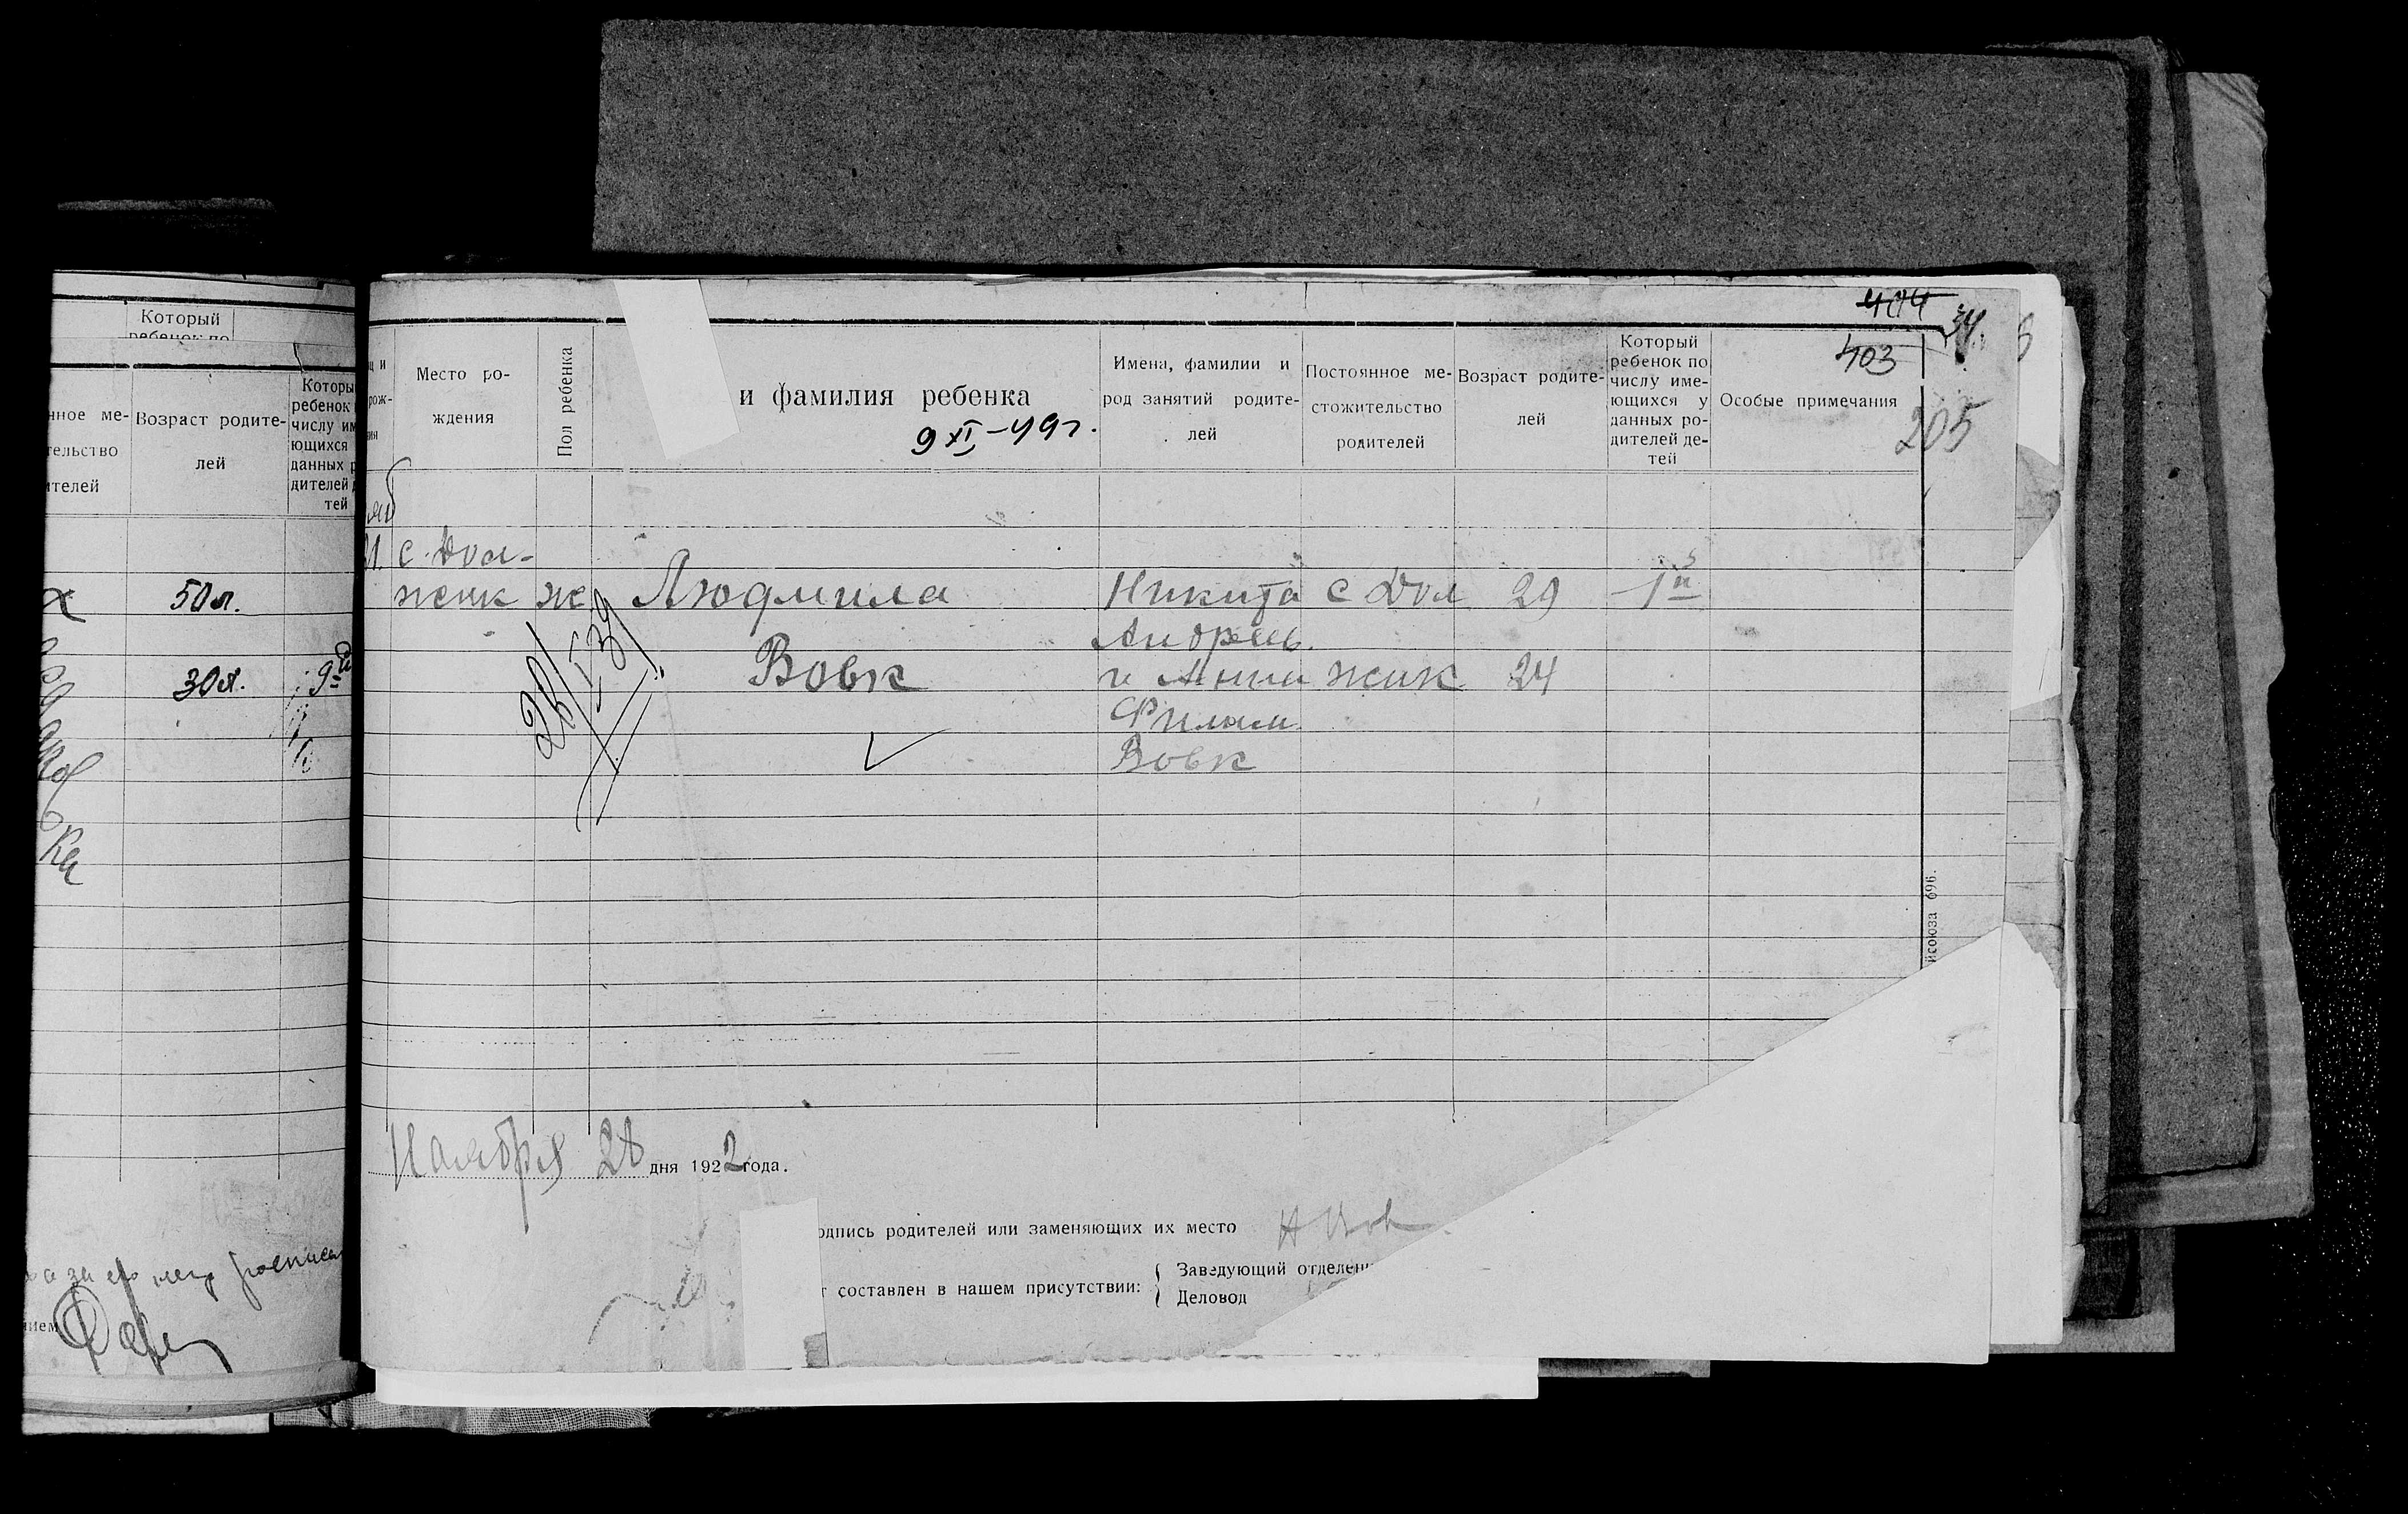 Который
ребенок по
нное ме-
тельство
ителей
Возраст родите-
лей
Которы
ребенок
числу им
ющихся
данных р
дителей д
тей
50 л.
30 л.
9й
404
403
34
205
Место ро-
ждения
Пол ребенка
и фамилия ребенка
9 XI – 49 г.
Имена, фамилии и
род занятий родите-
лей
Постоянное ме-
стожительство
родителей
Возраст родите-
лей
Который
ребенок по
числу име-
ющихся у
данных ро-
дителей де-
тей
Особые примечания
с. Дол-
жик ж Людмила Никита с Дол 29 1й
Андреев.
Вовк и Анна жик 24
Филим.
Вовк
28/I 39
исоюза 696.
Ноября 28 дня 1922 года.
одпись родителей или заменяющих их место Н Вов
т составлен в нашем присутствии:
Заведующий отделени
Деловод
нием